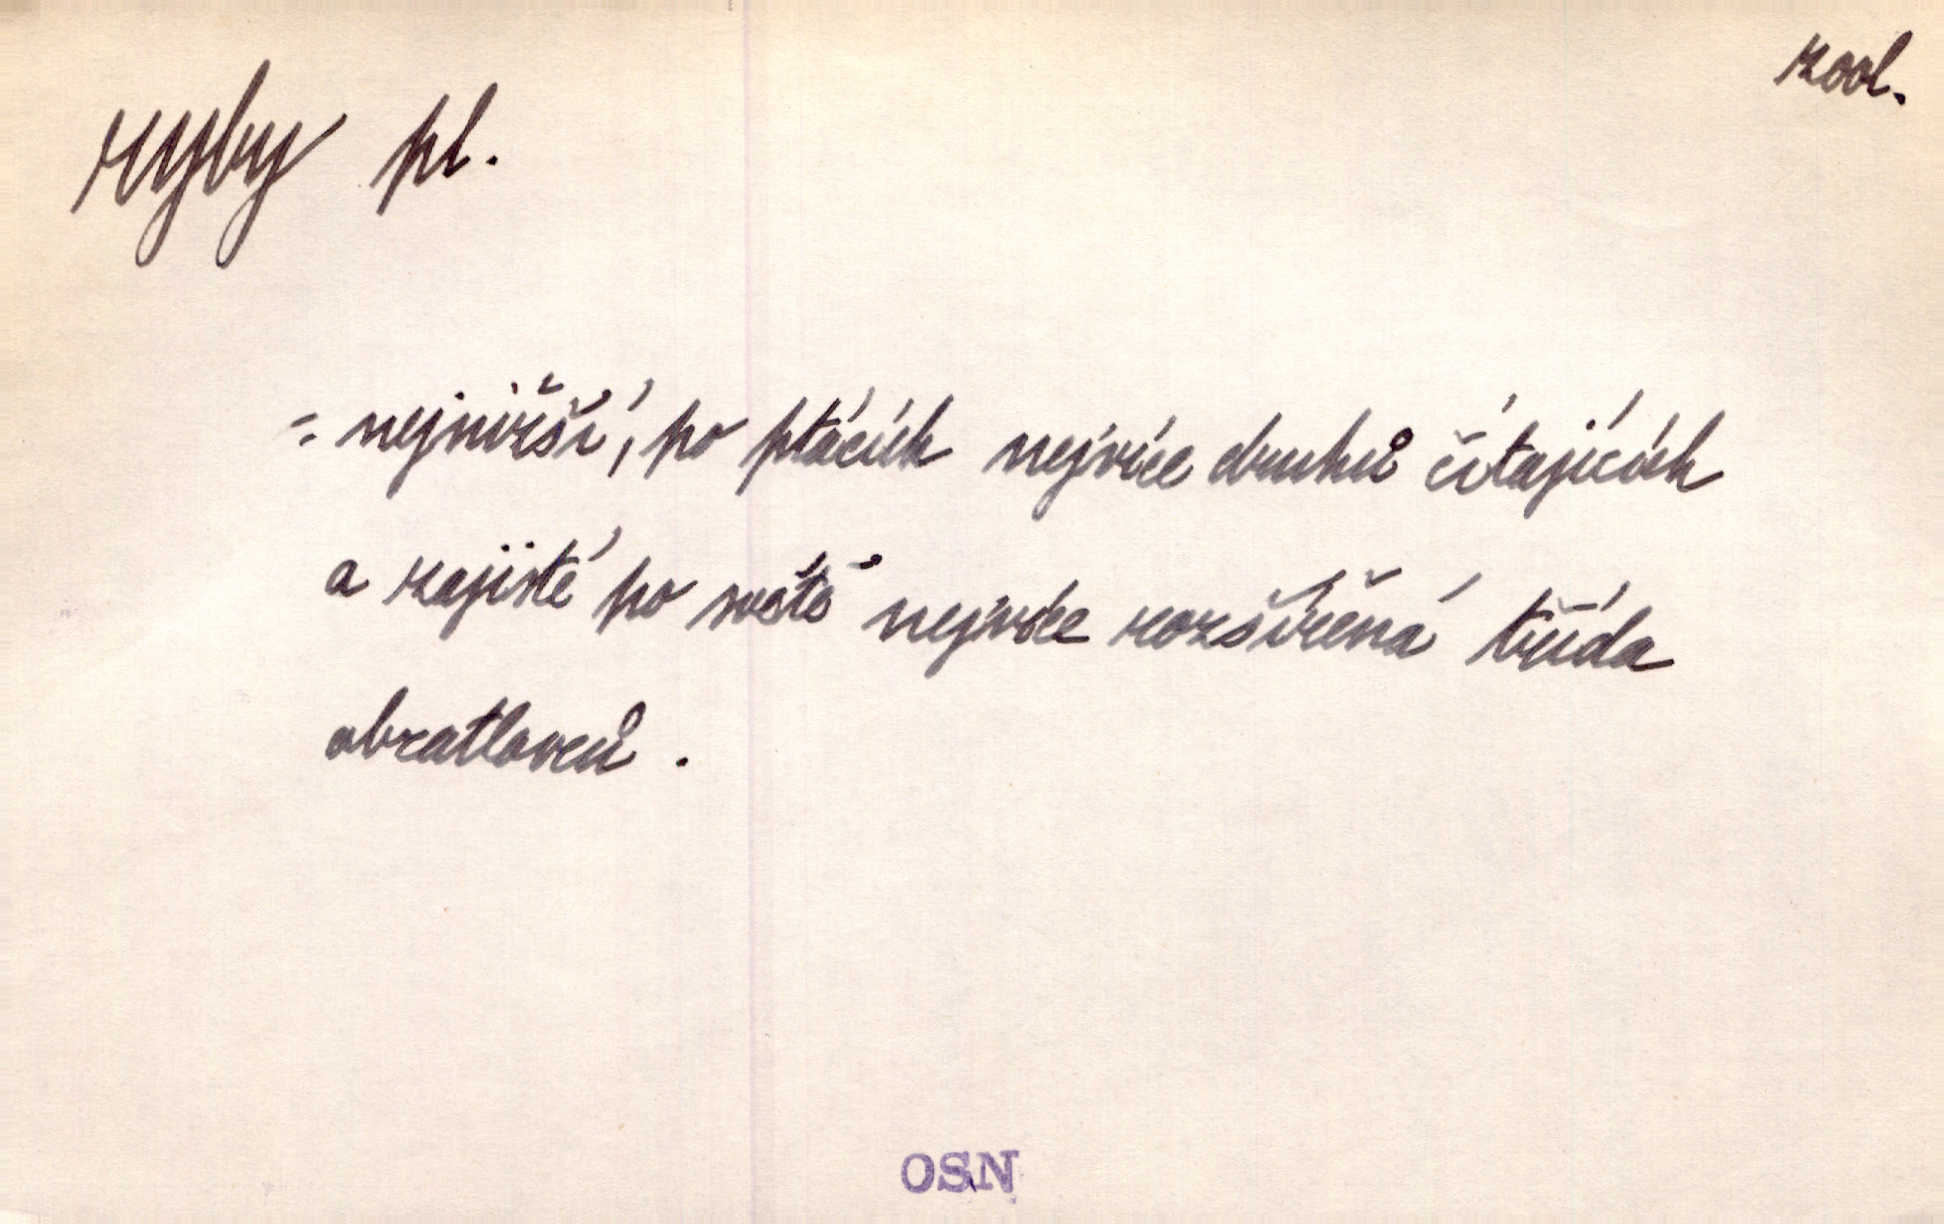 zool.
ryby pl.
= nejnižší, po ptácích nejvíce druhů čítajících
a zajisté po světě nejvíce rozšířená třída
obratlovců.
OSN